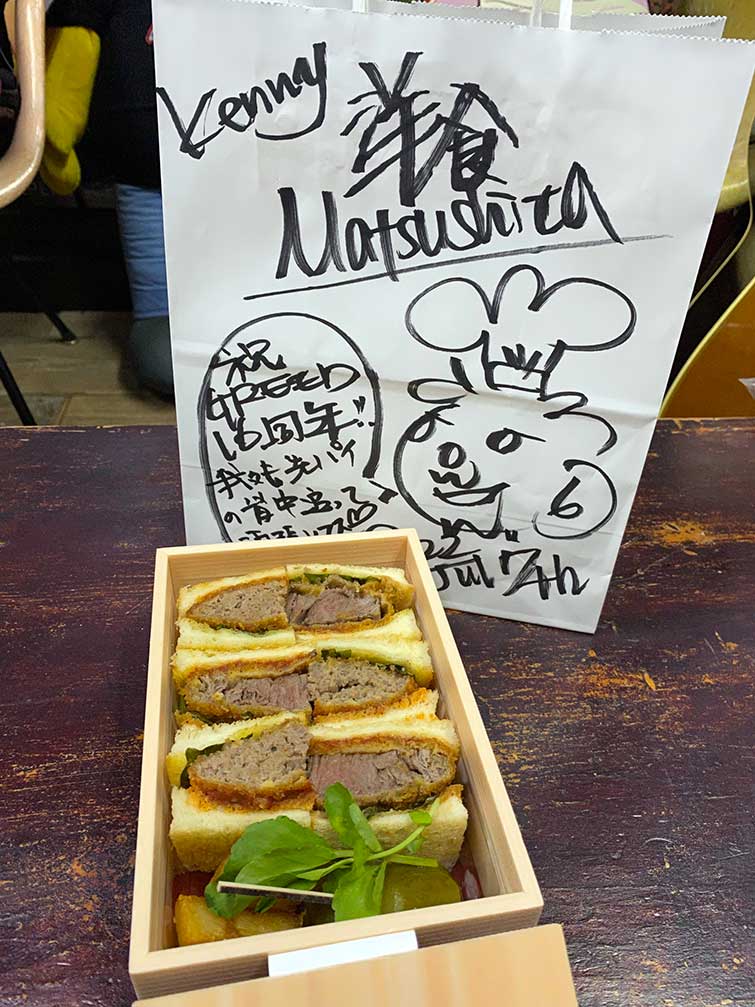 Kenny
洋食
Matsushita
祝
GREED
16周年!!
先パイ
の背中追って
22
Jul 7th
6